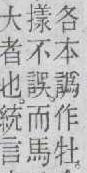 各本譌作牡。
樣不誤。而馬
大者也。統言